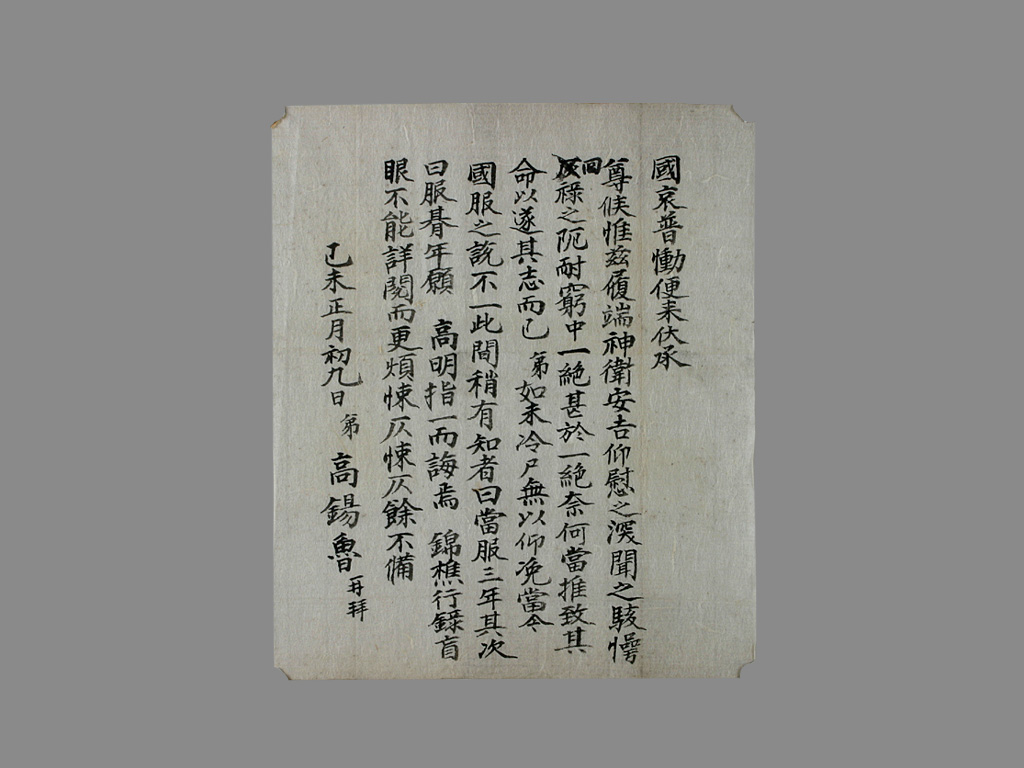 國哀普慟便耒伏承
尊候惟玆履端神衛安吉仰慰之深聞之駭愕
回祿之阨耐窮中一絶甚於一絶奈何當推致其
命以遂其志而已 弟如未冷尸無以仰浼當今
國服之說不一此間稍有知者曰當服三年其次
曰服朞年願 高明指一而誨焉 錦樵行錄盲
眼不能詳閱而更煩悚仄悚仄餘不備
己未正月初九日 弟 高錫魯 再拜